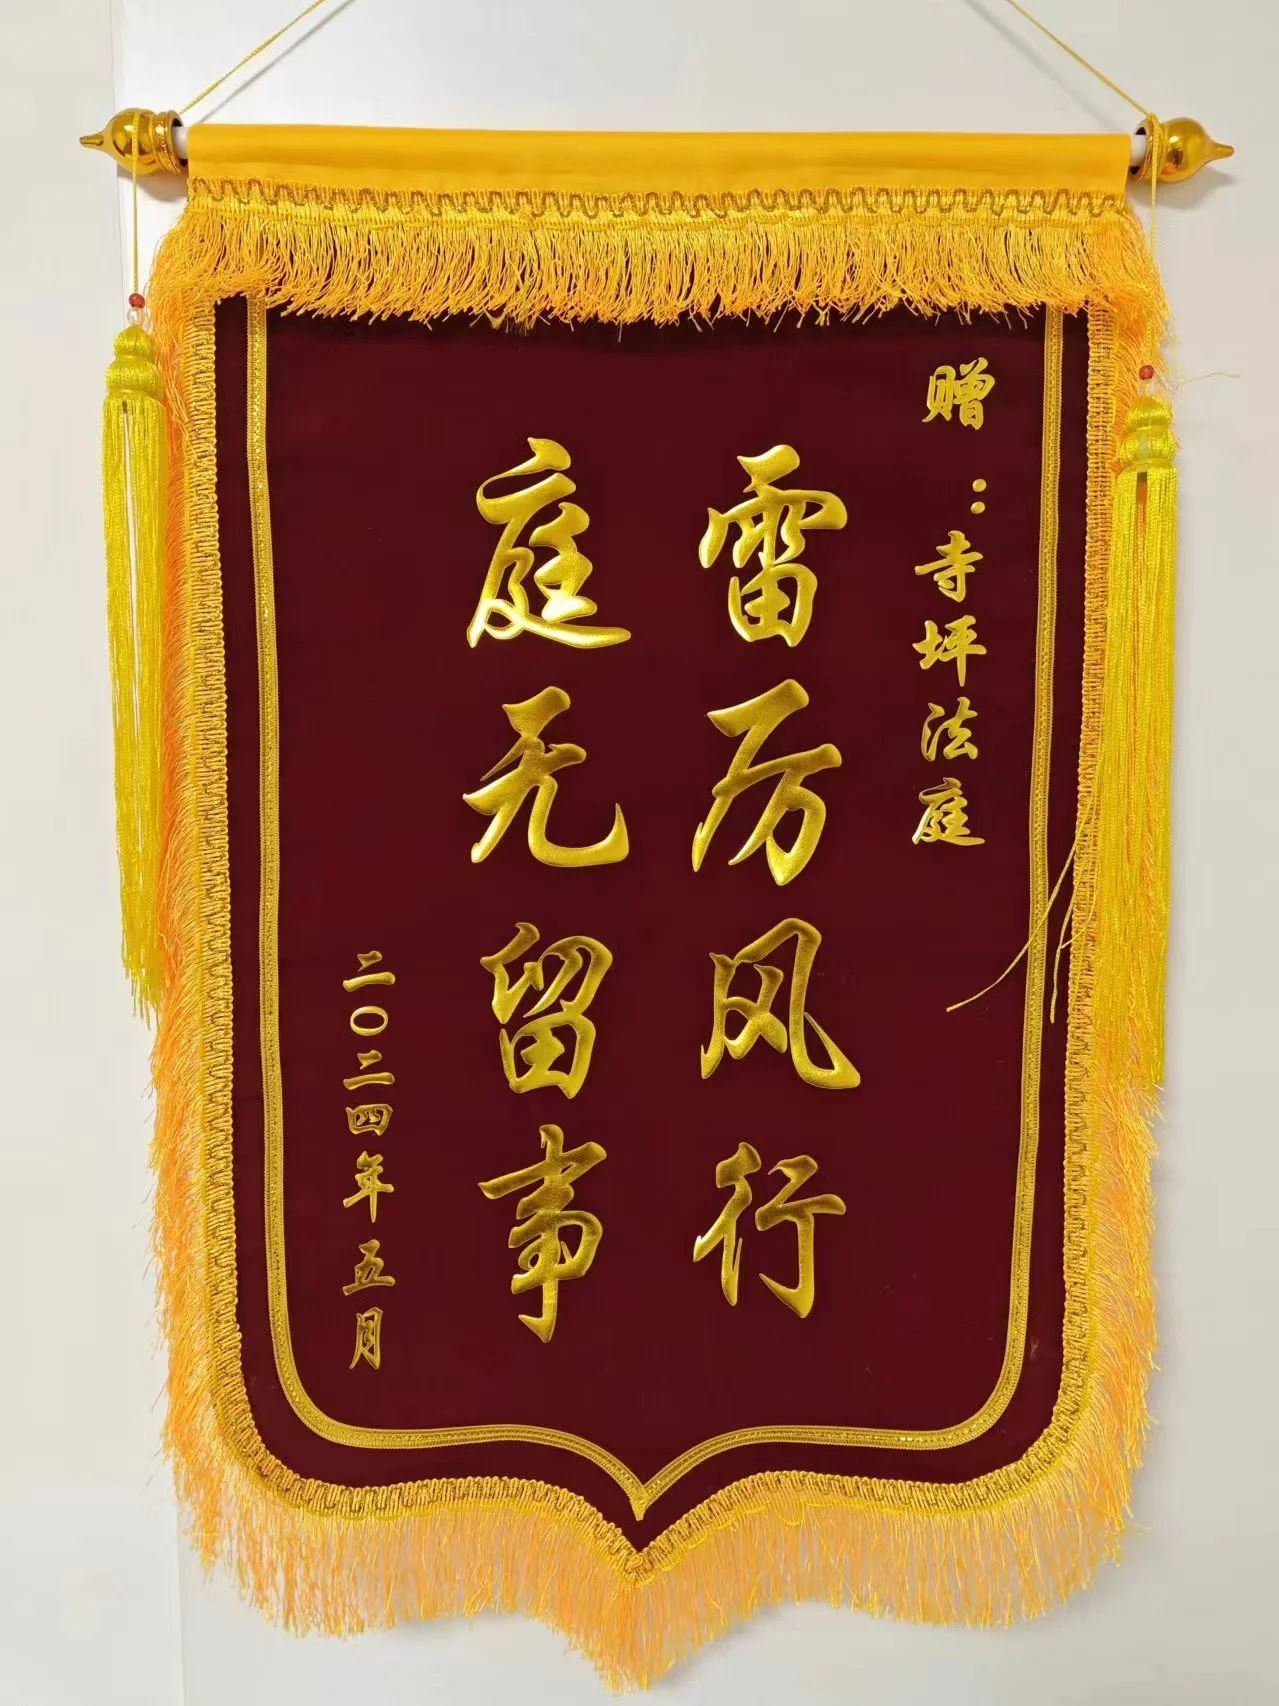 赠：寺坪法庭
雷厉风行
庭无留事
二〇二四年五月